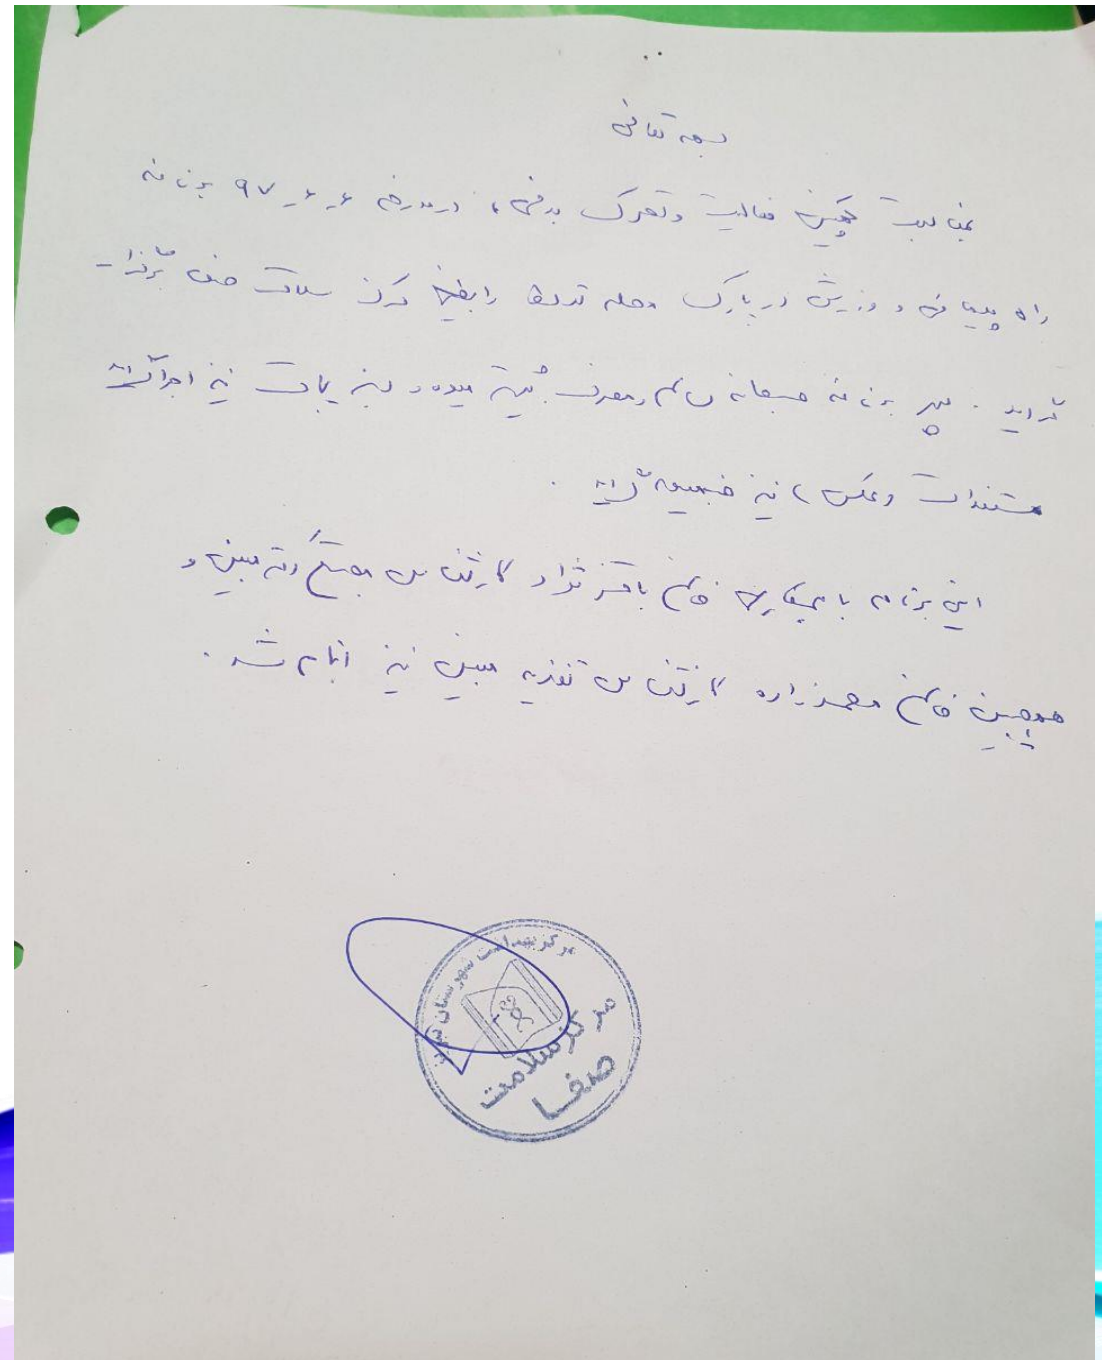 بسمه تعالی
بمناسبت کمپین فعالیت و تحرک بدنی، در مورخه ۶ـ۶ـ۹۷ برنامه
راه پیمائی و ورزش در پارک محله توسط رابطین مرکز سلامت صفا برگزار
گردید. سپس برنامه صبحانه سالم و مصرف بیشتر میوه و سبزیجات نیز اجرا گردید
مستندات و عکسها نیز ضمیمه گردید.
این برنامه با همکاری خانم باقرنژاد کارشناس و
همچنین خانم محمدزاده کارشناس تغذیه مبین نیز انجام شد.
مرکز بهداشت شهرستان تبریز
مرکز سلامت
صفا